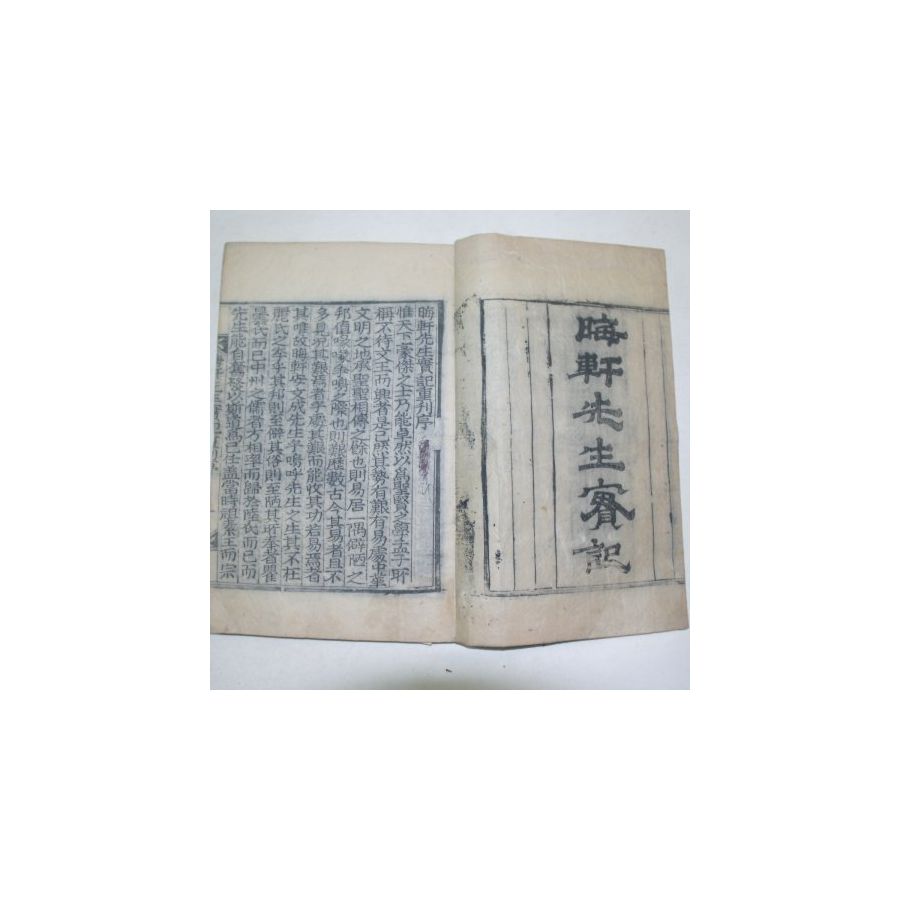 晦軒先生實記
晦軒先生實記重刊序
惟天下豪傑之士乃能卓然以爲聖賢之學孟子所
稱不待文王而興者是已然其勢有艱有易處中華
文明之地承聖聖相傳之餘也則易居一隅僻陋之
邦値喙喙爭鳴之際也則艱歷數古今其易者且不
多見況其艱焉者乎處其艱而能收其功若易焉者
其唯故晦軒安文成先生乎嗚呼先生之生其不在
麗氏之季乎其邦則至僻其俗則至陋其所奉者瞿
曇氏而已中州之儒者方相率而歸於陸氏而已而
先生能自奮發以斯道爲己任盖當時祖素王而宗